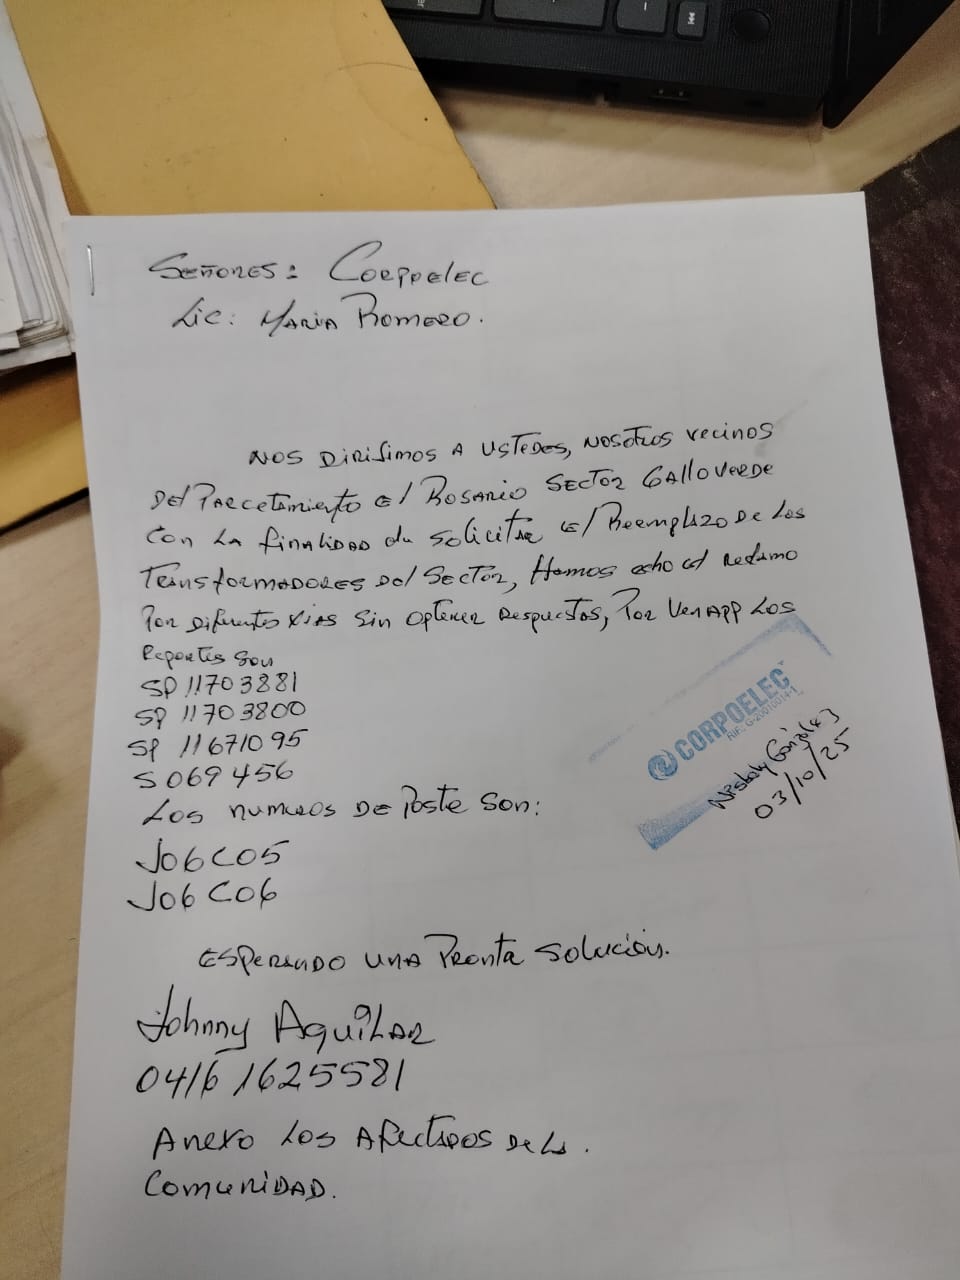 Señores: Corpoelec
Lic: Maria Romero.
Nos dirisimos a ustedes, nosotros vecinos
Del Parcetamiento el Rosario Sector Gallo Verde
Con la finalidad de solicitar el Reemplazo De Los
Transformadores Del Sector, Hemos echo el Reclamo
Por Diferentes vias sin optener Respuestas, Por VenApp Los
Reportes son
SP 11703881
SP 11703800
SP 11671095
S069456
Los numeros De Poste son:
J06C05
J06C06
Esperando una Pronta solución.
Johnny Aguilar
0416 1625581
Anexo Los Afectados De la.
Comunidad.
CORPOELEC
RIF. G-20010014-1
González
03/10/25